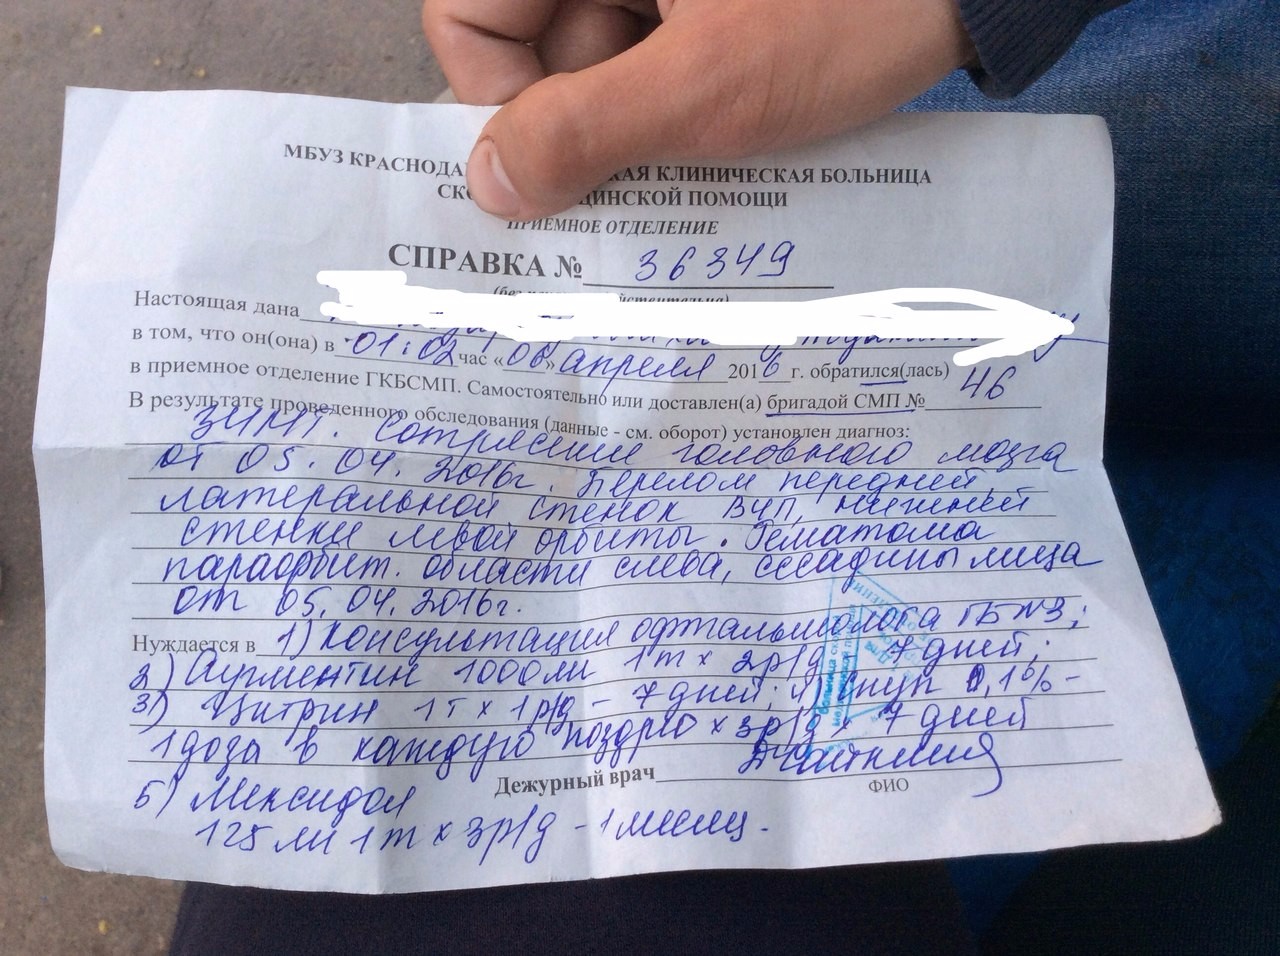 МБУЗ КРАСНОДА КАЯ КЛИНИЧЕСКАЯ БОЛЬНИЦА
СКО ЦИНСКОЙ ПОМОЩИ
ПРИЕМНОЕ ОТДЕЛЕНИЕ
СПРАВКА № 36349
Настоящая дана
в том, что он(она) в 01:02 час «06» апреля 2016 г. обратился(лась)
в приемное отделение ГКБСМП. Самостоятельно или доставлен(а) бригадой СМП № 46
В результате проведенного обследования (данные - см. оборот) установлен диагноз:
ЗЧМТ. Сотрясение головного мозга
от 05.04.2016г. Перелом передней,
латеральной стенок ВЧП, нижней
стенки левой орбиты. Гематома
параорбит. области слева, ссадины лица
от 05.04.2016г.
Нуждается в 1) Консультация офтальмолога ГБ№3;
2) Аугментин 1000 1т х 2р/д 7 дней;
3) Цитрин 1т х 1р/д - 7 дней; 4) 0,1% -
1 доза в каждую ноздрю х 3р/д х 7 дней
Дежурный врач
ФИО
5) Мексидол
125 1т х 3р/д - 1 месяц.